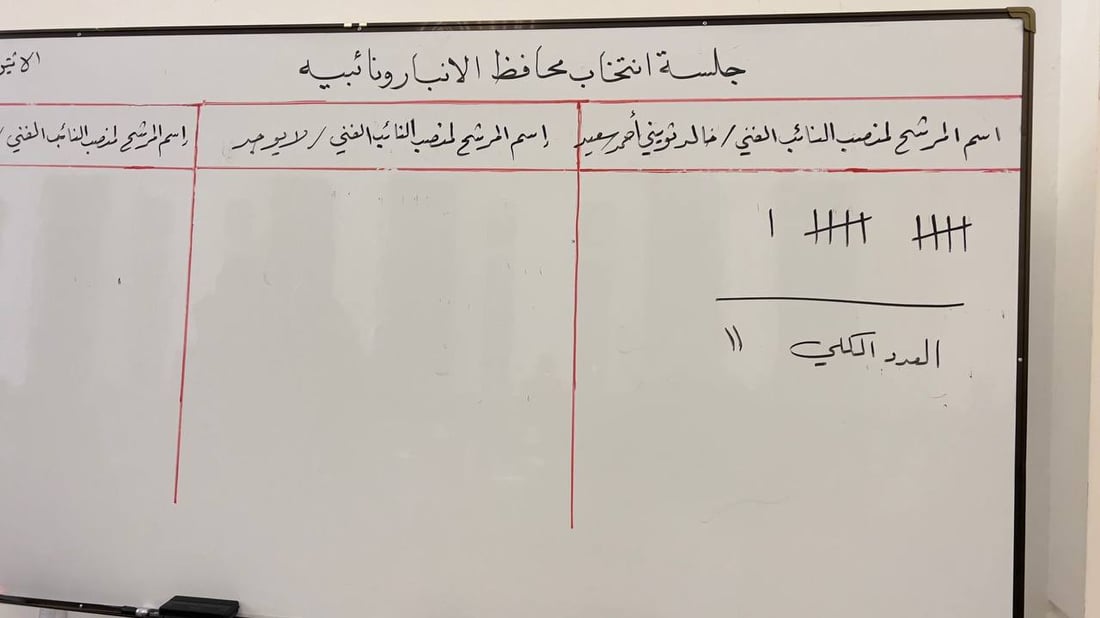 جلسة انتخاب محافظ الانبار ونائبيه
اسم المرشح لمنصب النائب الفني / خالد ثويني أحمد سعيد
إسم المرشح لمنصب النائب الفني / لا يوجد
إسم المرشح لمنصب النائب الفني /
العدد الكلي ١١